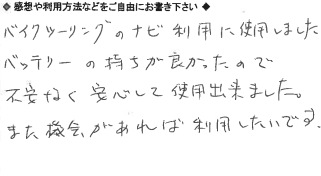 ◆ 感想や利用方法などをご自由にお書き下さい ◆
バイクツーリングのナビ利用に使用しました
バッテリーの持ちが良かったので
不安なく安心して使用出来ました。
また機会があれば利用したいです。